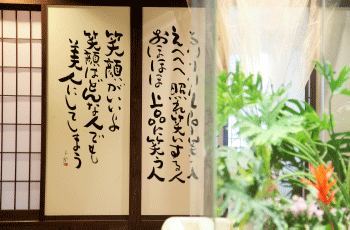 えへへへ 照れ笑いする人
おほほほ 上品に笑う人
笑顔がいいよ
笑顔はどんな人でも
美人にしてしまう